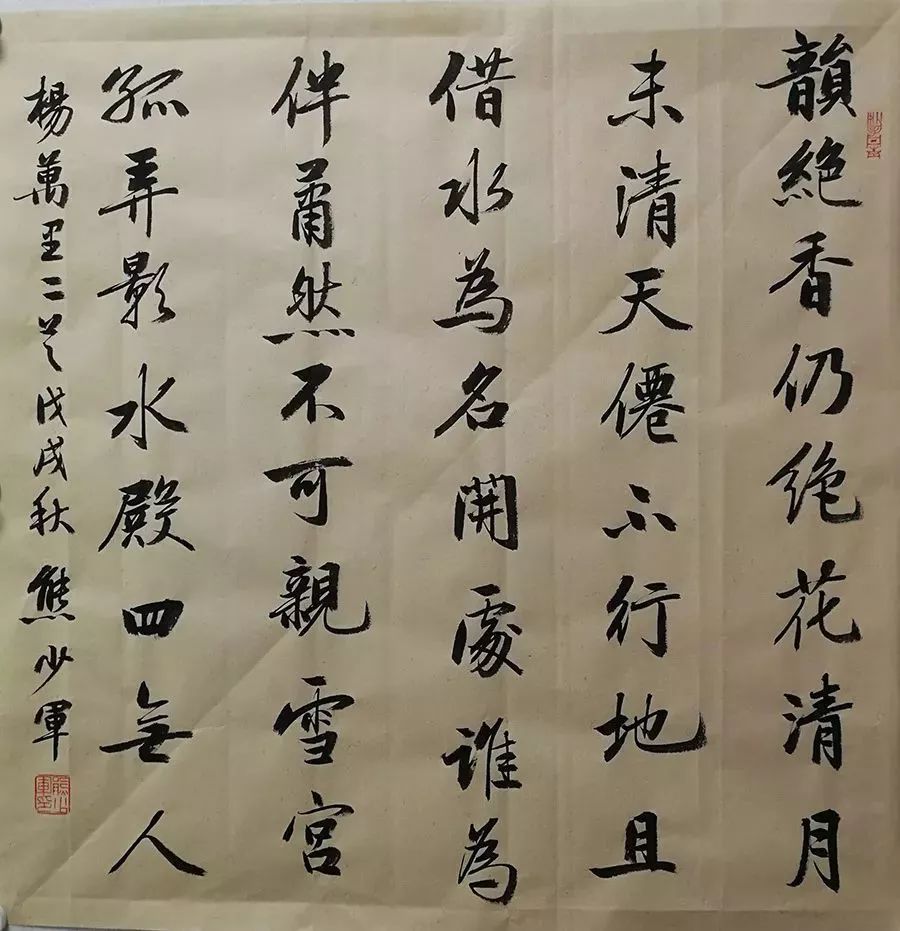 韻絶香仍绝花清月
未清天僊不行地且
借水為名開處誰為
伴蕭然不可親雪宮
孤弄影水殿四無人
楊萬里二首戊戌秋熊少軍
熊少軍印